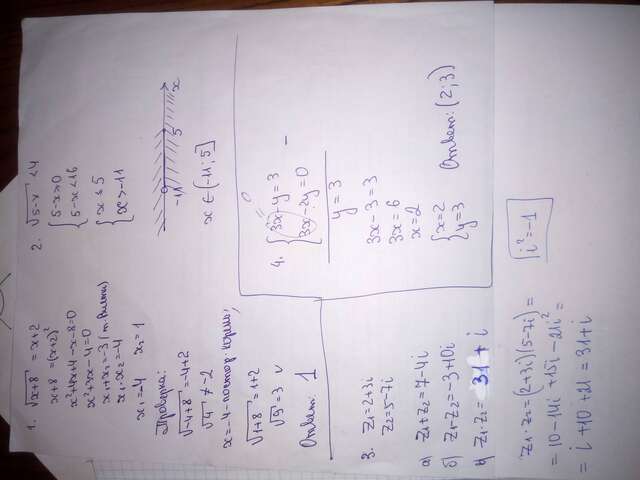 1. √x+8 = x+2
x+8 = (x+2)²
x²+4x+4-x-8=0
x²+3x-4=0
x₁+x₂=-3 (т. Виета)
x₁·x₂=-4
x₁=-4 x₂=1
Проверка:
√-4+8 = -4+2
√4 ≠ -2
x=-4-постор корень;
√1+8 = 1+2
√9=3 v
Ответ: 1
2. √5-x < 4
{5-x≥0
5-x<16
{x ≤ 5
x>-11
-11 5 x
x ∈ (-11; 5]
3. z₁=2+3i
z₂=5-7i
а) z₁+z₂=7-4i
б) z₁-z₂=-3+10i
в) z₁·z₂= 31+i
4. {3x-y=3
3x-2y=0
y=3
3x-3=3
3x=6
x=2
{x=2
y=3
Ответ: (2;3)
z₁·z₂=(2+3i)(5-7i)=
=10-14i+15i-21i²=
=i+10+21=31+i
i²=-1